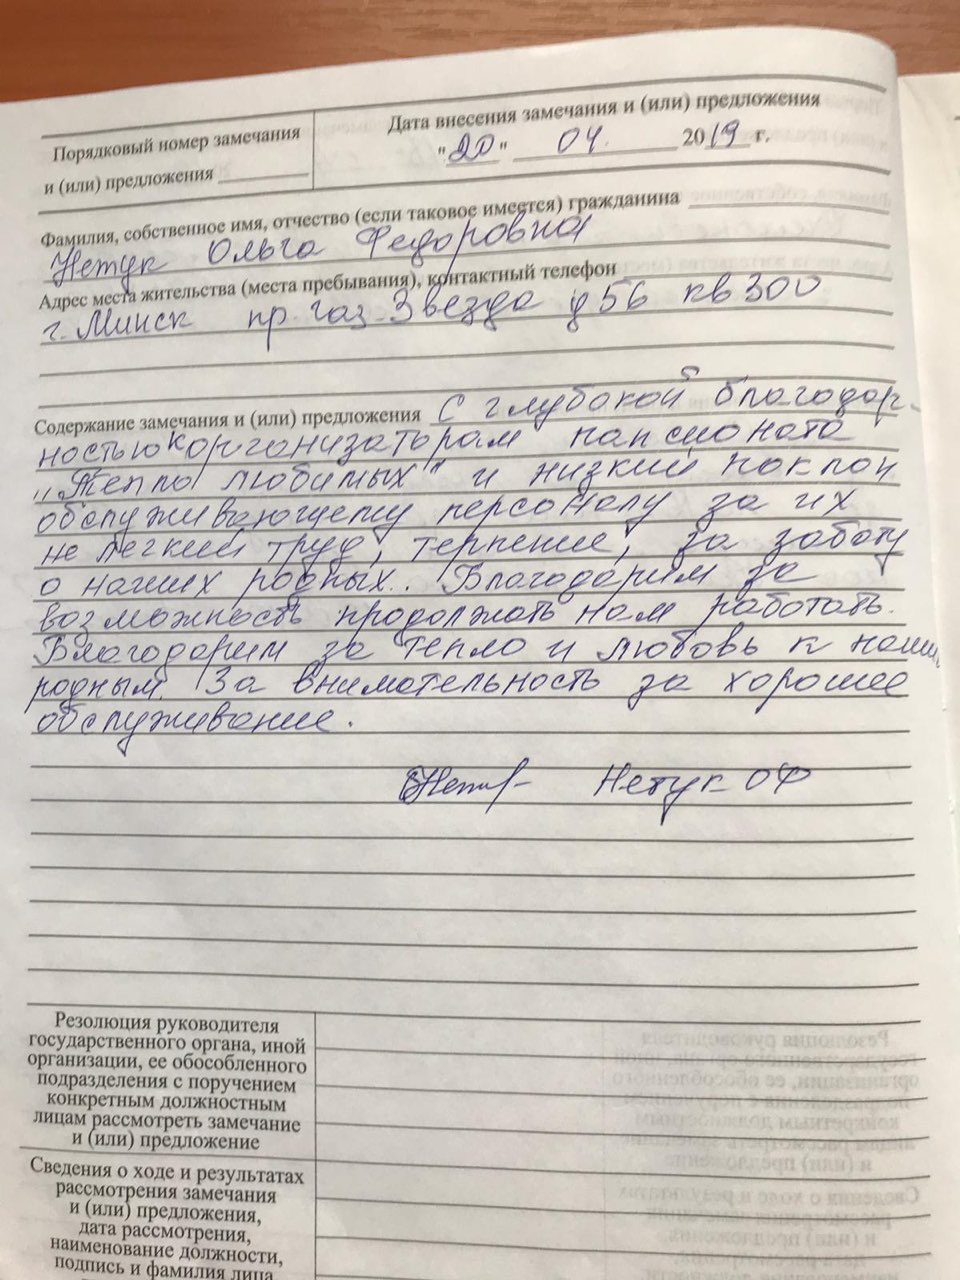 Порядковый номер замечания
и (или) предложения
Дата внесения замечания и (или) предложения
"20" 04. 2019 г.
Фамилия, собственное имя, отчество (если таковое имеется) гражданина
Нетук Ольга Федоровна
Адрес места жительства (места пребывания), контактный телефон
г. Минск пр. газ. Звезда д 56 кв 300
Содержание замечания и (или) предложения С глубокой благодар-
ностью к организаторам пансионата
„Тепло любимых" и низкий поклон
обслуживающему персоналу за их
не легкий труд, терпение, за заботу
о наших родных.. Благодарим за
возможность продолжать нам работать.
Благодарим за тепло и любовь к нашим
родным. За внимательность за хорошее
обслуживание.
Нетук ОФ
Резолюция руководителя
государственного органа, иной
организации, ее обособленного
подразделения с поручением
конкретным должностным
лицам рассмотреть замечание
и (или) предложение
Сведения о ходе и результатах
рассмотрения замечания
и (или) предложения,
дата рассмотрения,
наименование должности,
подпись и фамилия лица,